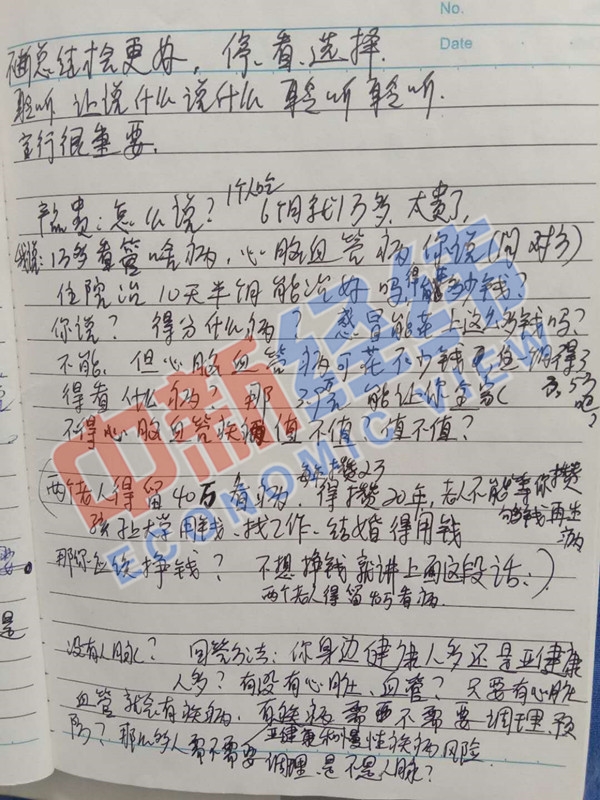 No.
Date
总结会更好，停、看、选择.
聆听 让说什么说什么 聆听 聆听.
言行很重要.
1个人吃
产品贵:怎么说? 6个月就1万多,太贵了,
我说:1万多看管啥病,心脑血管病你说(问对方)
住院治10天半月能治好吗,得多少钱?
你说? 得分什么病? 感冒能花上这么多钱吗?
不能,但心脑血管病可花不少钱
得看什么病? 那 能让你全家
不得心脑血管疾病值不值?值不值?
每年攒2万
(两个老人得留40万看病,得攒20年,老人不能等你攒
够钱再生病
孩子上大学用钱、找工作、结婚得用钱
那你应该挣钱? 不想挣钱就讲上面这段话:)
两个老人得留40万看病.
没有人脉? 回答方法:你身边健康人多还是亚健康
人多?有没有心脏、血管? 只要有心脏
血管就会有疾病,有疾病需不需要调理、预
防?那么多人需不需要调理,是不是人脉?
亚健康和慢性疾病风险
中新经纬
ECONOMIC VIEW